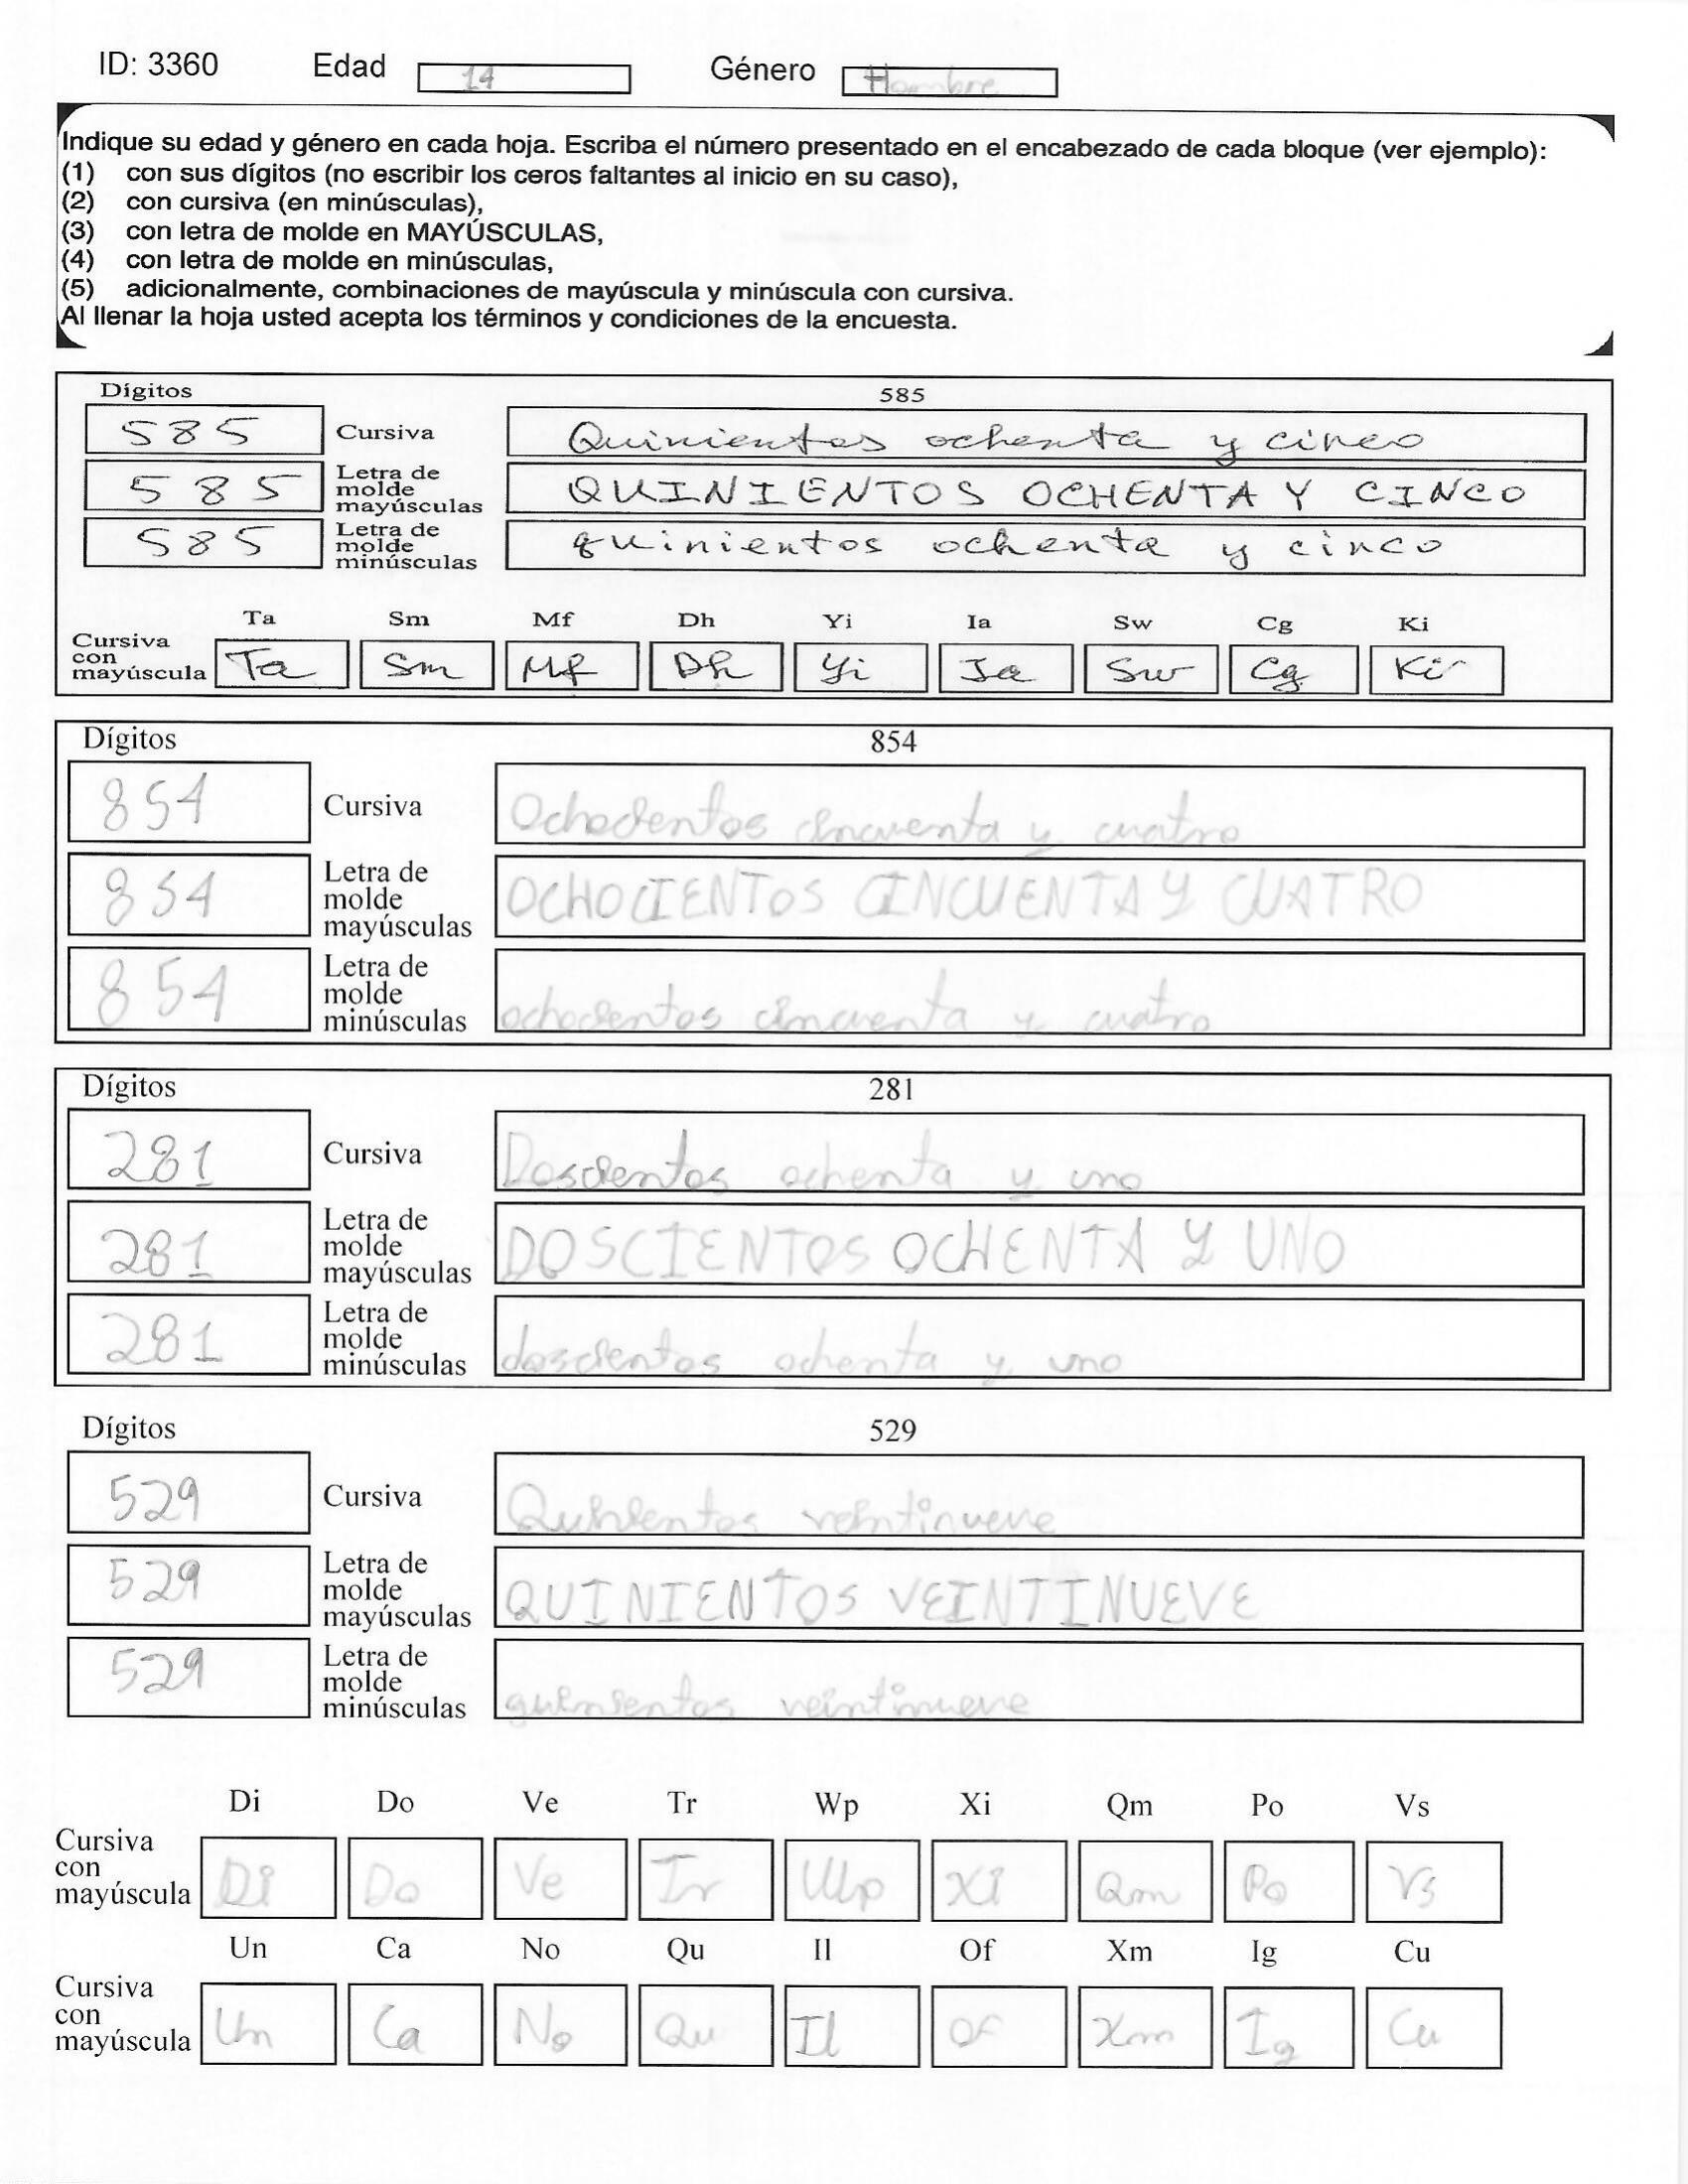 ID: 3360 Edad 14 Género Hombre
Indique su edad y género en cada hoja. Escriba el número presentado en el encabezado de cada bloque (ver ejemplo):
(1) con sus dígitos (no escribir los ceros faltantes al inicio en su caso),
(2) con cursiva (en minúsculas),
(3) con letra de molde en MAYÚSCULAS,
(4) con letra de molde en minúsculas,
(5) adicionalmente, combinaciones de mayúscula y minúscula con cursiva.
Al llenar la hoja usted acepta los términos y condiciones de la encuesta.
Dígitos 585
585 Cursiva Quinientos ochenta y cinco
585 Letra de molde mayúsculas QUINIENTOS OCHENTA Y CINCO
585 Letra de molde minúsculas quinientos ochenta y cinco
Ta Sm Mf Dh Yi Ia Sw Cg Ki
Cursiva con mayúscula Ta Sm Mf Dh Yi Ia Sw Cg Ki
Dígitos 854
854 Cursiva Ochocientos cincuenta y cuatro
854 Letra de molde mayúsculas OCHOCIENTOS CINCUENTA Y CUATRO
854 Letra de molde minúsculas ochocientos cincuenta y cuatro
Dígitos 281
281 Cursiva Doscientos ochenta y uno
281 Letra de molde mayúsculas DOSCIENTOS OCHENTA Y UNO
281 Letra de molde minúsculas doscientos ochenta y uno
Dígitos 529
529 Cursiva Quinientos veintinueve
529 Letra de molde mayúsculas QUINIENTOS VEINTINUEVE
529 Letra de molde minúsculas quinientos veintinueve
Di Do Ve Tr Wp Xi Qm Po Vs
Cursiva con mayúscula Di Do Ve Tr Wp Xi Qm Po Vs
Un Ca No Qu Il Of Xm Ig Cu
Cursiva con mayúscula Un Ca No Qu Il Of Xm Ig Cu